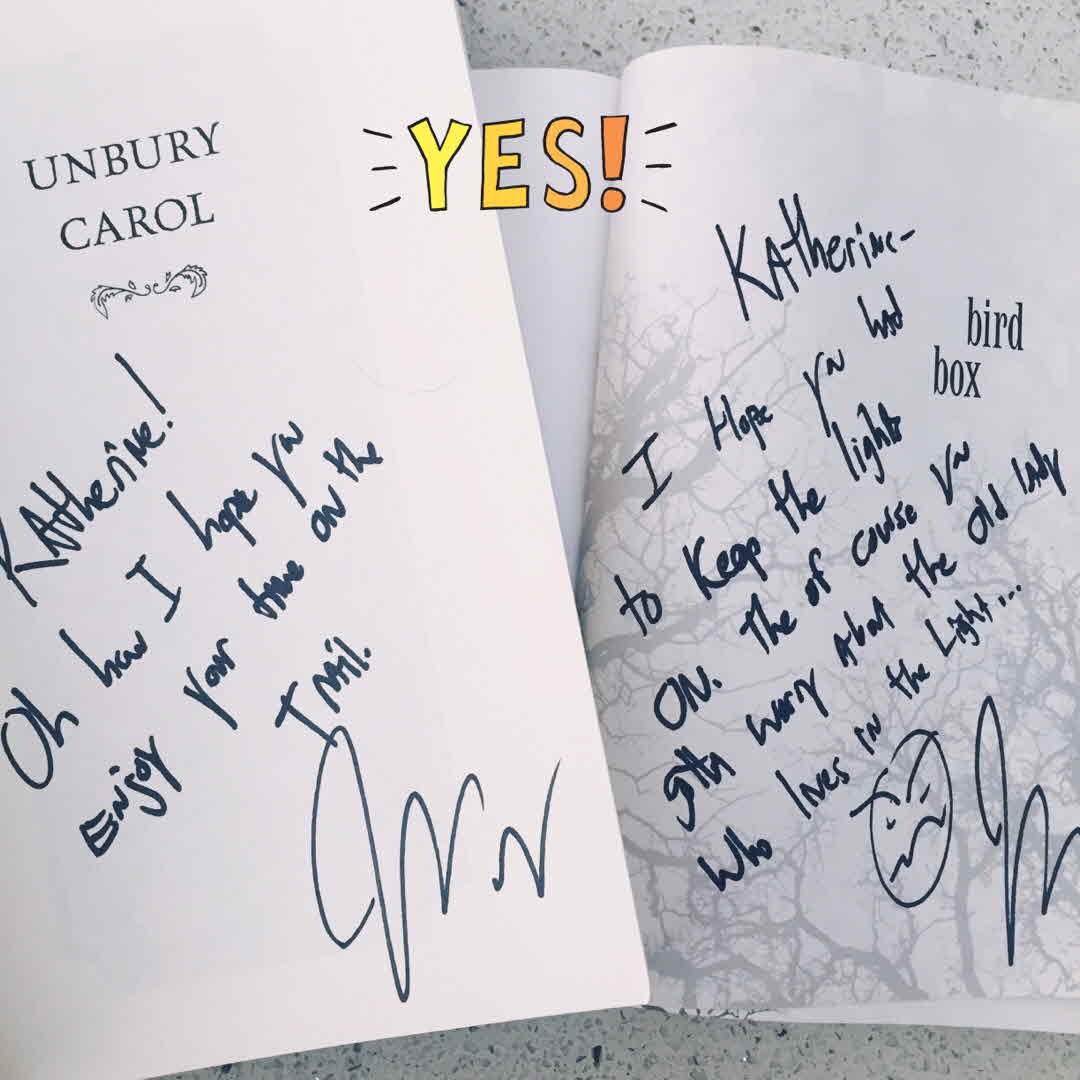 UNBURY
CAROL
YES!
Katherine!
Oh how I hope you
enjoy your time on the
Trail.
bird
box
Katherine-
I Hope you had
to Keep the lights
ON. The of course you
gotta worry about the old lady
who lives in the Light...